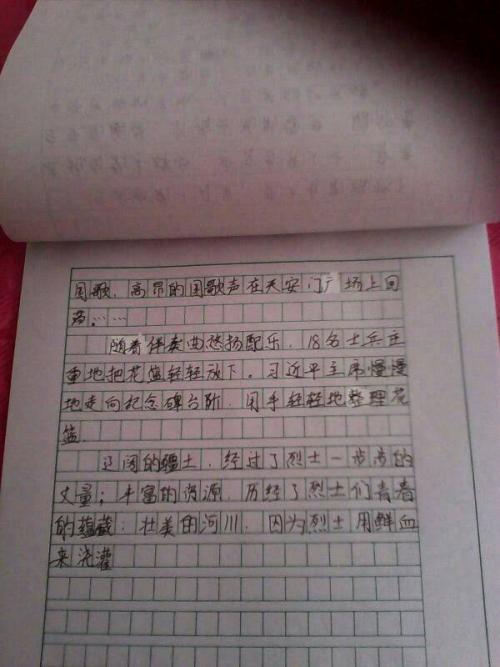 国歌，高昂的国歌声在天安门广场上回
荡……
随着伴奏曲悠扬配乐，18名士兵庄
重地把花篮轻轻放下。习近平主席慢慢
地走向纪念碑台阶，用手轻轻地整理花
篮.
辽阔的疆土，经过了烈士一步步的
丈量；丰富的资源，历经了烈士们青春
的蕴藏；壮美的河川，因为烈士用鲜血
来浇灌